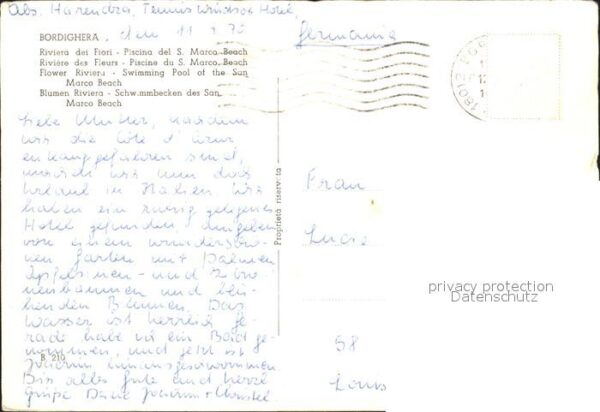 Abs. Tennis Windsor Hotel
BORDIGHERA, den 11 70
Germania
Riviera dei Fiori - Piscina del S. Marco Beach
Riviere des Fleurs - Piscine du S. Marco Beach
Flower Riviera - Swimming Pool of the San
Marco Beach
Blumen Riviera - Schwimmbecken des San
Marco Beach
18012 BOR
liebe Mutter, nachdem
wir die Côte d'Azur
entlanggefahren sind,
wir nun doch
Urlaub in Italien. Wir
haben ein ruhig gelegenes
Hotel gefunden, umgeben
von einem wunderschö-
nen Garten mit Palmen
Apfelsinen- und Zitro-
nenbäumen und blü-
henden Blumen. Das
Wasser ist herrlich, ge-
rade habe ich ein Bad ge-
nommen, und jetzt ist
Joachim
Bis alles Gute und herzl.
Grüße Deine Joachim + Christel
B. 210
Proprietà riservata
Frau
58
privacy protection
Datenschutz